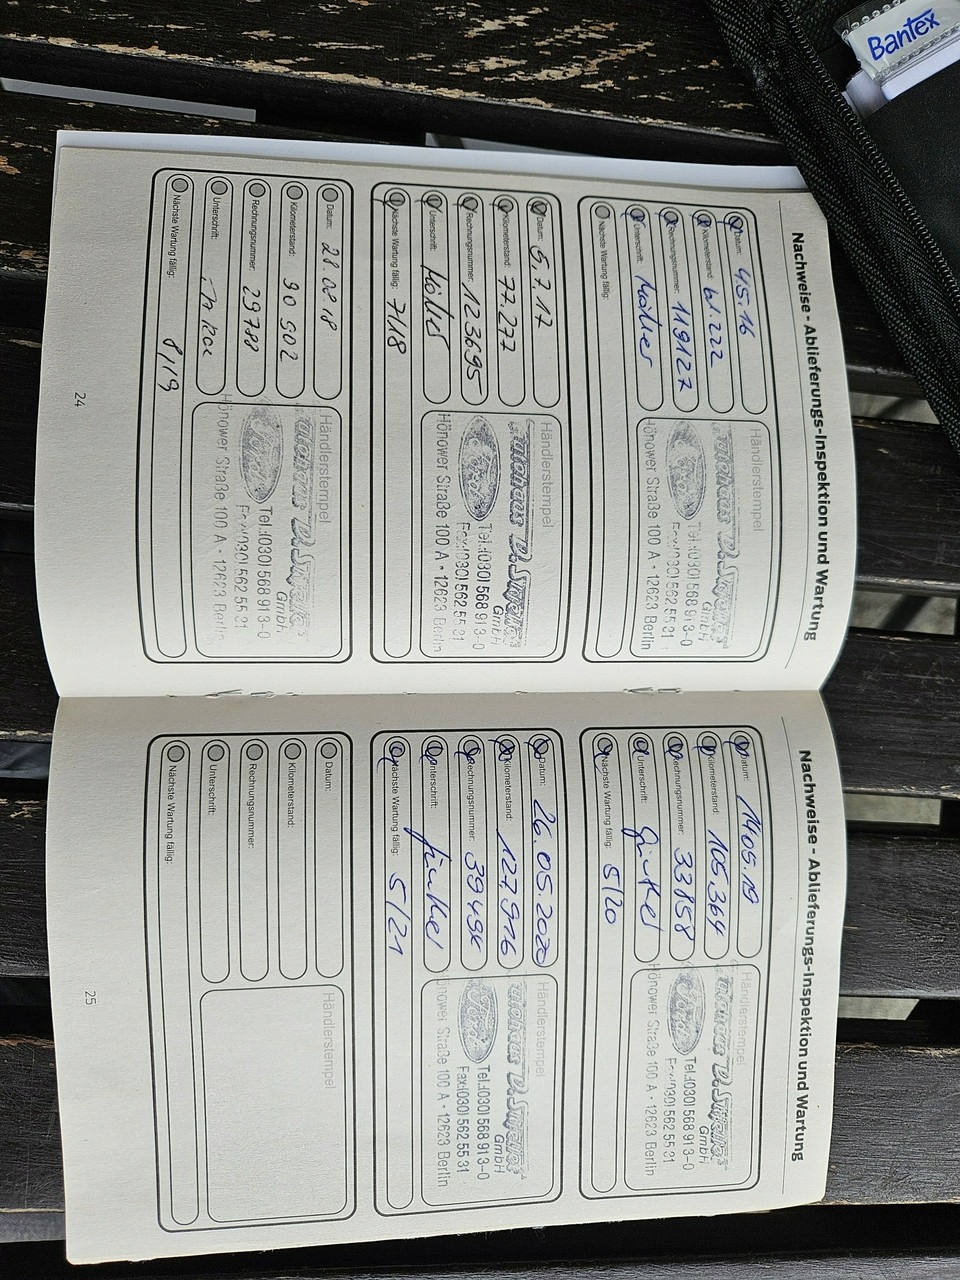 Bantex
Nachweise - Ablieferungs-Inspektion und Wartung
Datum: 4.5.16
Kilometerstand: 61.222
Rechnungsnummer: 119127
Unterschrift:
Nächste Wartung fällig:
Händlerstempel
Autohaus D.
GmbH
Tel.:(030) 568 91 3-0
Fax:(030) 562 55 31
Hönower Straße 100 A • 12623 Berlin
Datum: 5.7.17
Kilometerstand: 77.277
Rechnungsnummer: 123695
Unterschrift:
Nächste Wartung fällig: 7/18
Händlerstempel
Autohaus D.
GmbH
Tel.:(030) 568 91 3-0
Fax:(030) 562 55 31
Hönower Straße 100 A • 12623 Berlin
Datum: 28.08.18
Kilometerstand: 90 902
Rechnungsnummer: 29788
Unterschrift:
Nächste Wartung fällig: 8/19
Händlerstempel
Autohaus D.
GmbH
Tel.:(030) 568 91 3-0
Fax:(030) 562 55 31
Hönower Straße 100 A • 12623 Berlin
24
Nachweise - Ablieferungs-Inspektion und Wartung
Datum: 14.05.19
Kilometerstand: 105.364
Rechnungsnummer: 33858
Unterschrift:
Nächste Wartung fällig: 5/20
Händlerstempel
Autohaus D.
GmbH
Tel.:(030) 568 91 3-0
Fax:(030) 562 55 31
Hönower Straße 100 A • 12623 Berlin
Datum: 26.05.2020
Kilometerstand: 127.916
Rechnungsnummer:
Unterschrift:
Nächste Wartung fällig: 5/21
Händlerstempel
Autohaus D.
GmbH
Tel.:(030) 568 91 3-0
Fax:(030) 562 55 31
Hönower Straße 100 A • 12623 Berlin
Datum:
Kilometerstand:
Rechnungsnummer:
Unterschrift:
Nächste Wartung fällig:
Händlerstempel
25